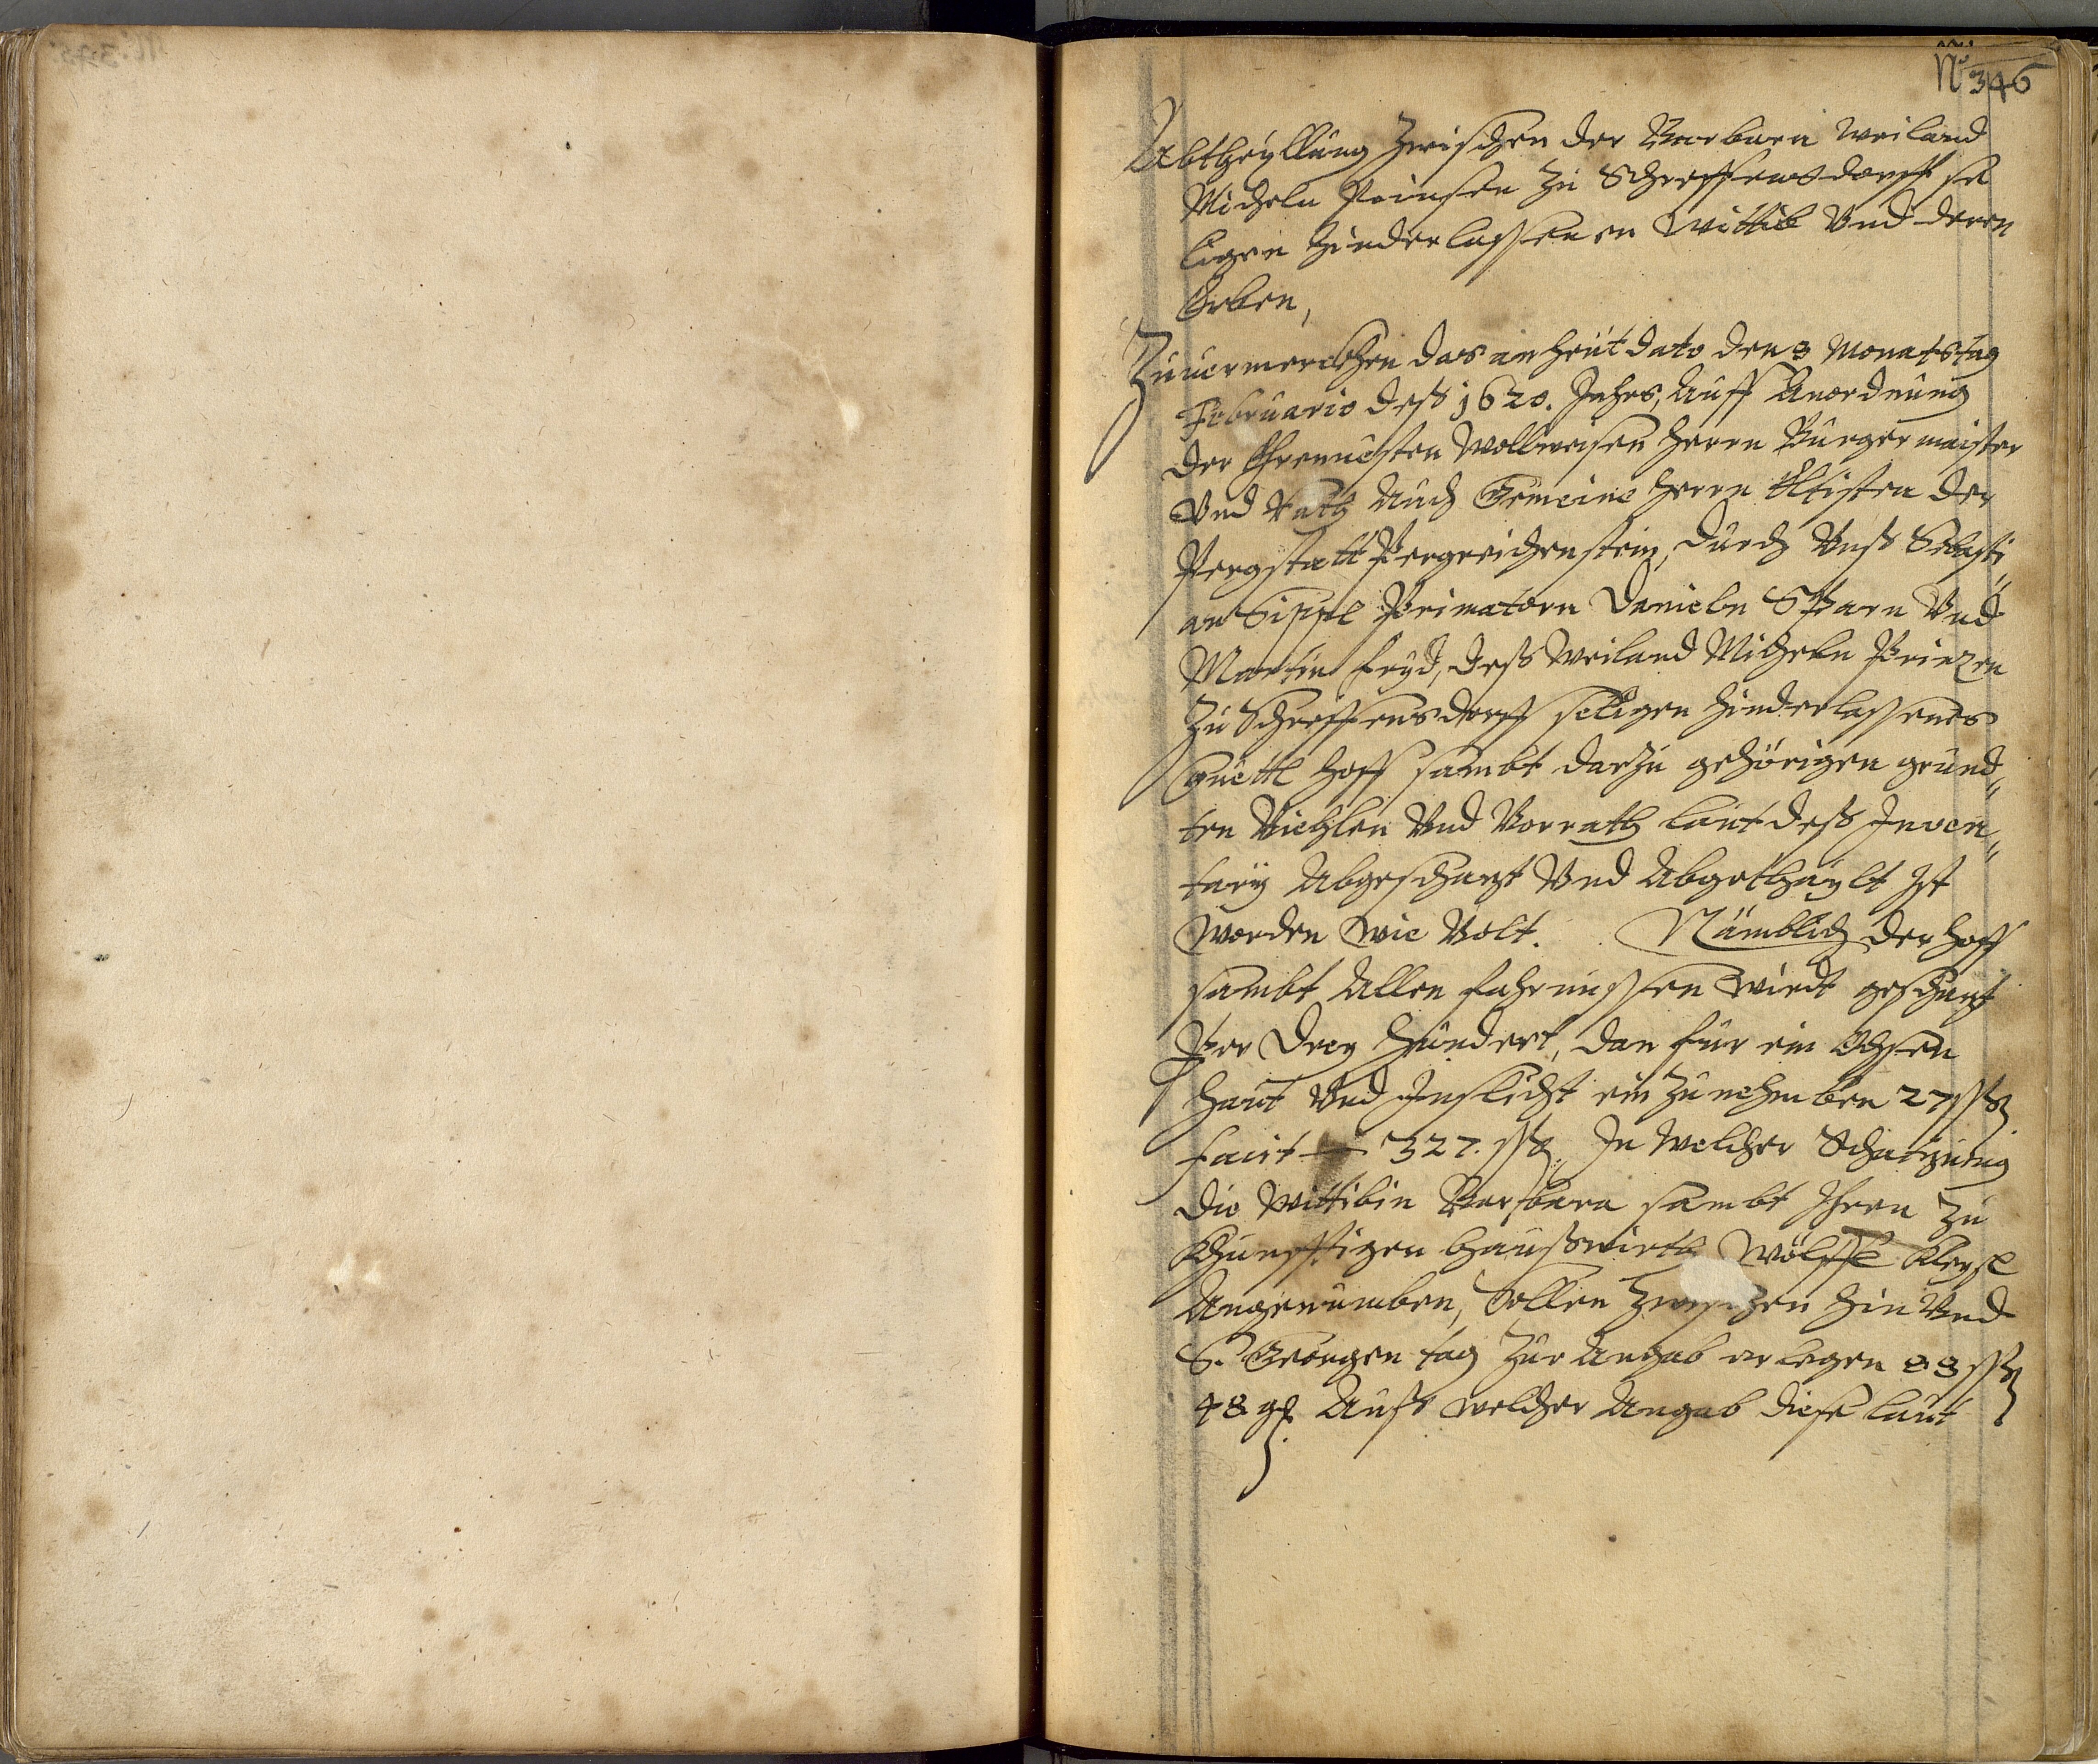 No 346
Abtheyllung Zwischen der Barbara weiland
Micheln Prinsen zu Schreffensdorff se
ligen hinderlassenen Wittib Vnd deren
Erben,
Zuuermerckhen das an heut dato den 3 Monatstag
Februario deß 1620. Jahrs, Auff Anordnung
der Ehrnuesten Wollweisen herrn Burgermaister
Vnd Rath Auch Gemeine herrn Eltisten der
Pergstatt Pergreichenstein, durch Vnß Sebasti
an Sippl Primatorn Danieln Span Vnd
Martin Feyd, deß weiland Micheln Prinzen
Zu Schreffensdorff seligen hinderlassenes
Guettl hoff sambt darzu gehörigen grund„
ten Viehlen Vnd Vorrath laut deß Inven„
tary Abgeschazt Vnd Abgethaylt ist
Worden Wie Volt. Nämblich der hoff
sambt Allen fahrnussen Wirdt geschazt
Per Drey hundert, dan für ein Ochsen
haut Vnd Inslicht ein Zunehmben 27 ßß
facit 327. ßß In Welcher Schaizung
die Wittibin Barbara sambt Ihren Zu
Khunfftigen haußwirth Wölffl
Angenumben, Sollen Zwischen hin Vnd
S. Georgen tag Zur Angab erlegen 83 ßß
48 gl. Auß welcher Angab diese laut